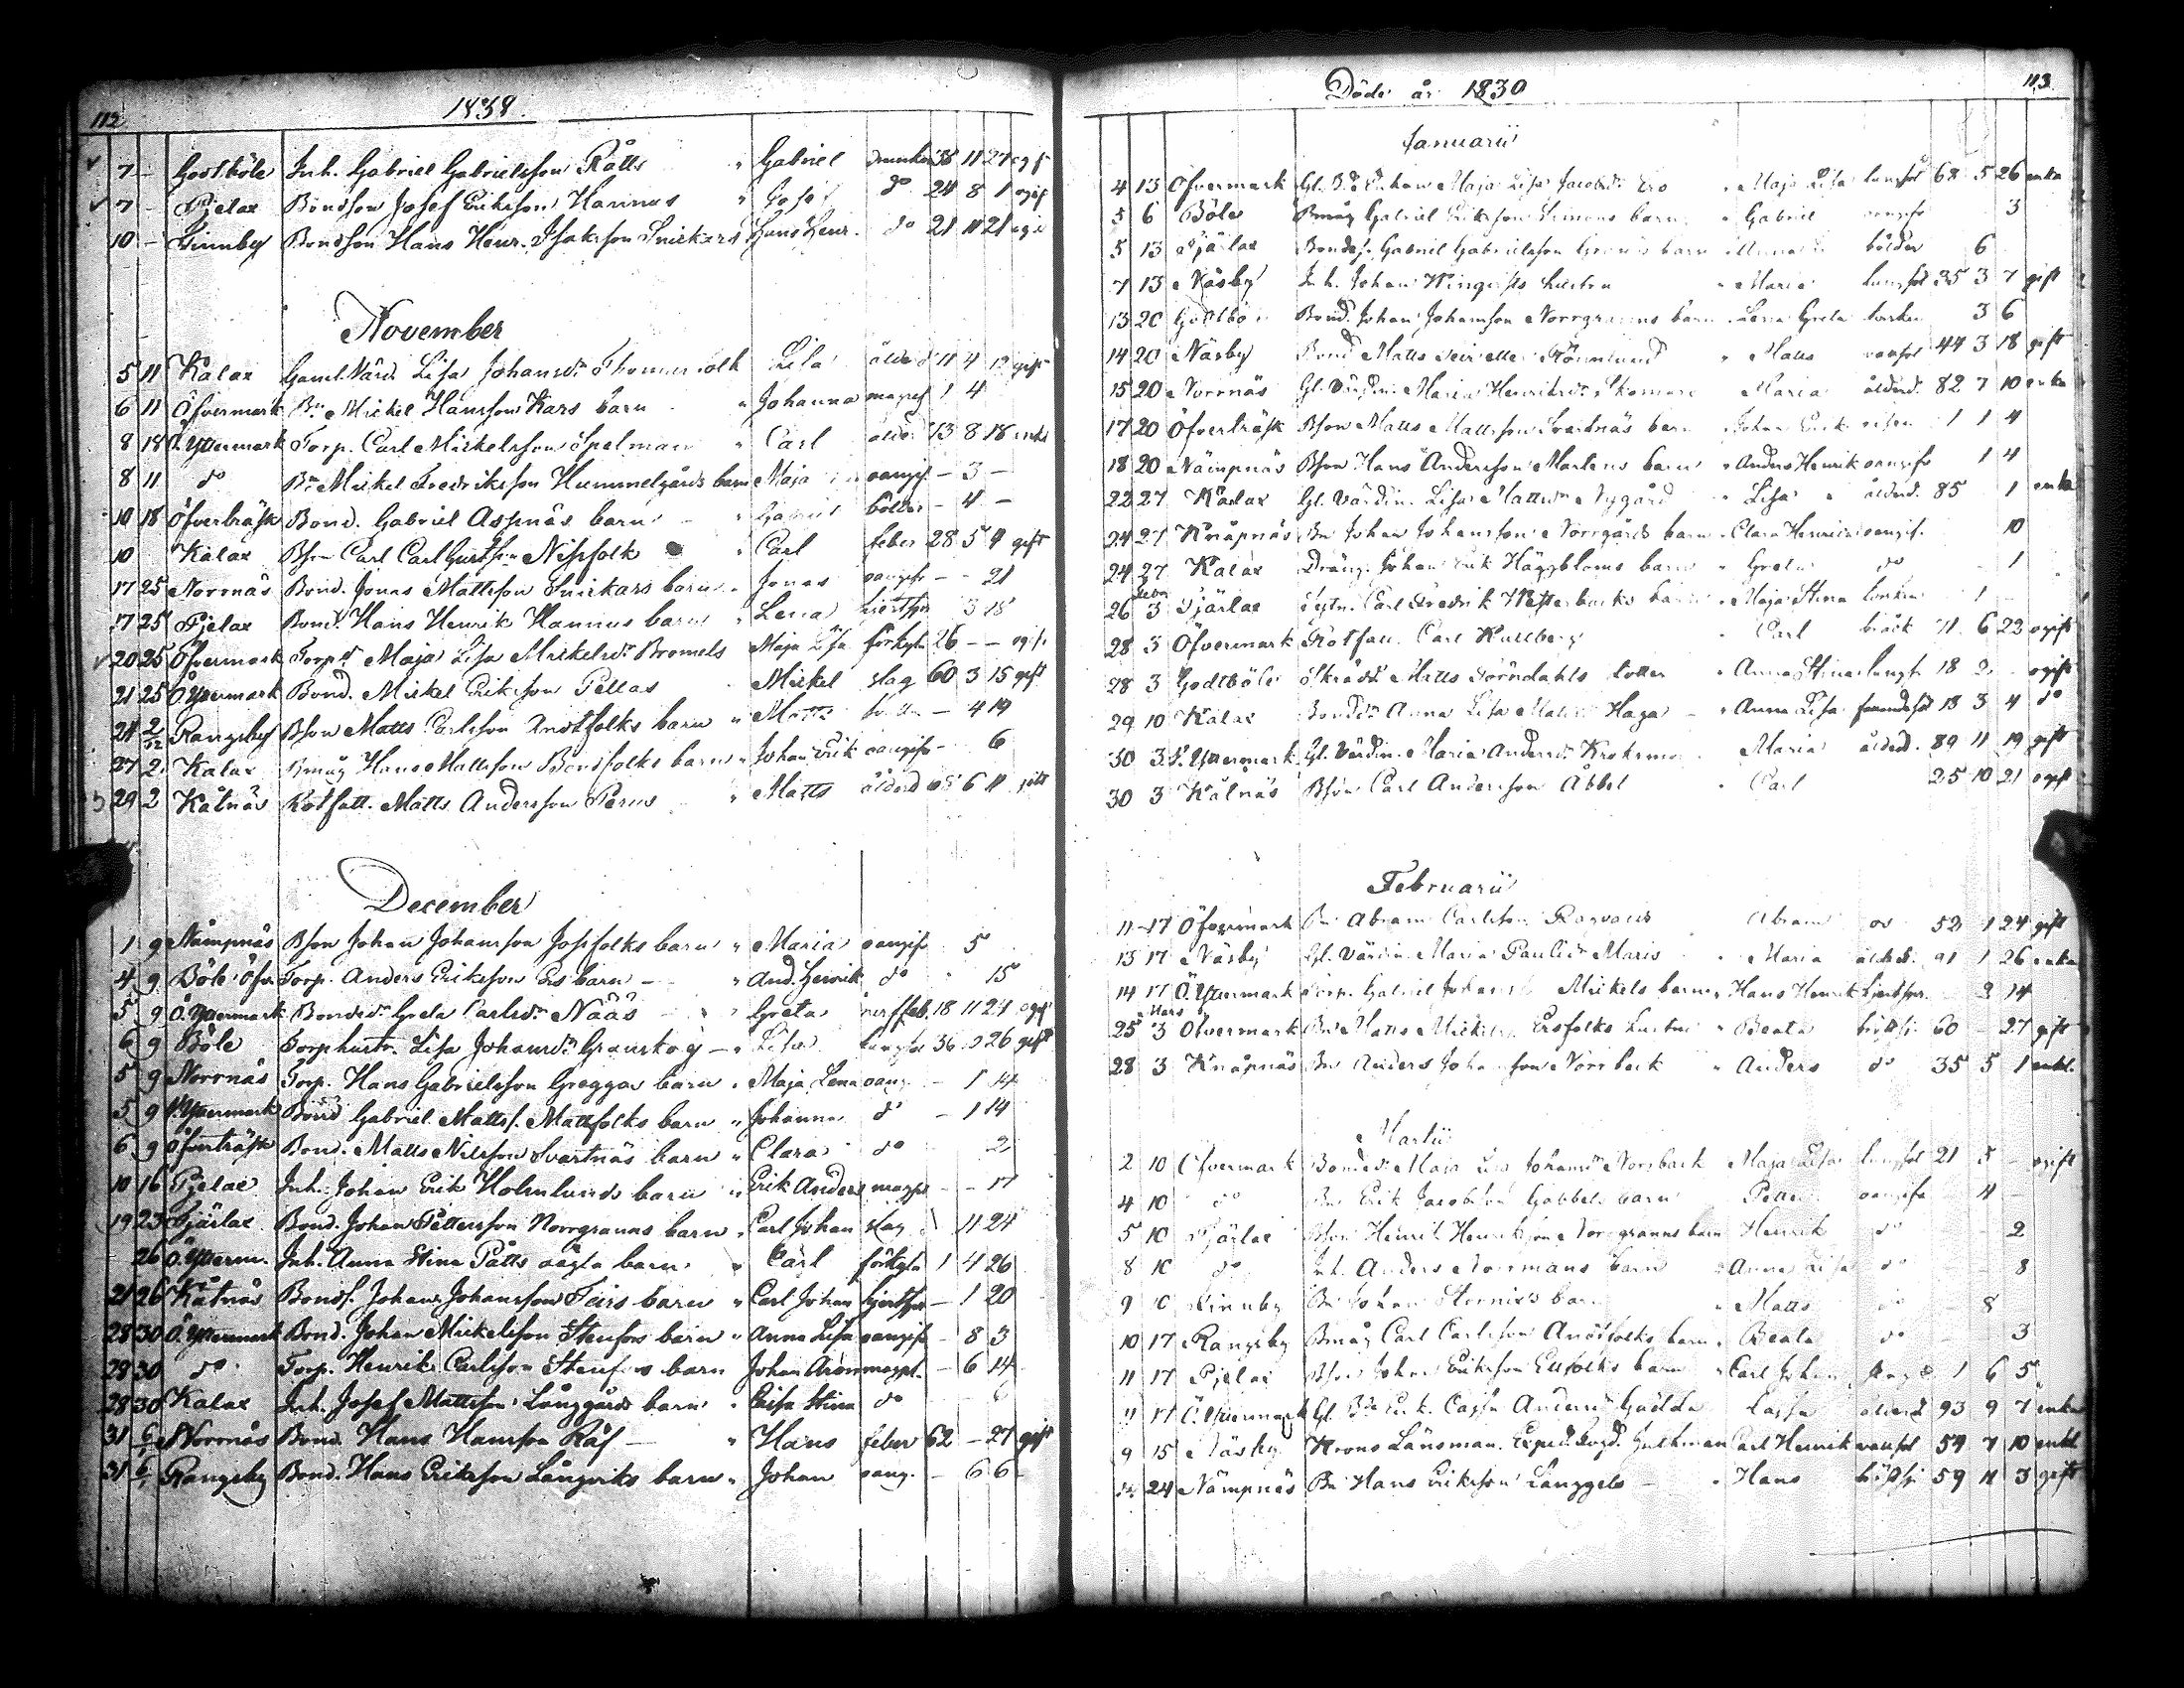 112
1838.
7 - Godtböle Inh. Gabriel Gabrielsson Rålls " Gabriel drunkn 38 11 27 ogift
7 - Pjelax Bondson Josef Eriksson Hannus " Josef do 24 8 1 ogift
10 - Finnby Bondson Hans Henr. Isaksson Snickars Hans Henr. do 21 11 21 ogi
November
5 11 Kalax Gaml. Värd. Lisa Johansdr Lisa ålderd 4 12 gift
6 11 Öfvermark Bn Mickel Hansson Kars barn " Johanna magref 1 4
8 18 Ö. Yttermark Torp. Carl Mickelsson Spelman " Carl ålderd 73 8 18 enkl
8 11 do Bn Mickel Fredriksson Hummelgårds barn Maja oangif - 3 -
10 18 Öfverträsk Bond. Gabriel Aspnäs barn " Gabriel bölder - 4 -
10 Kalax Bson Carl Carl Gustson Nissfolk " Carl feber 28 5 9 gift
17 25 Norrnäs Bond. Jonas Mattsson Snickars barn " Jonas oangifv - - 21
17 25 Pjelax Bond. Hans Henrik Hannus barn " Lena hjertspr 3 18
20 25 Öfvermark Torpdr Maja Lisa Mickelsdr Bromels Maja Lisa förkyln 26 - - ogift
21 25 Ö. Yttermark Bond. Mickel Eriksson Pellas Mickel slag 60 3 15 gift
24 2/12 Rangsby Bson Matts Carlsson Anstfolks barn " Matts - 4 19
27 2 Kalax Bmåg Hans Mattsson Bondfolks barn " Johan Erik oangifv - 6
29 2 Kåtnäs Rotfatt. Matts Andersson Perus " Matts ålderd 6 11 gift
December
1 9 Nämpnäs Bson Johan Johansson Josfolks barn " Maria oangif 5
4 9 Böle Öfv. Torp. Anders Eriksson Ers barn - " And. Henrik do 15
5 9 Ö. Yttermark Bondedr Greta Carlsdr Nääs " Greta nerffeb. 18 11 24 ogift
6 9 Böle Torphustr. Lisa Johansdr Granskog - " Lisa lungsot 36 9 26 gift
5 9 Norrnäs Torp. Hans Gabrielsson Greggas barn " Maja Lena oang - 1 14
5 9 Yttermark Bond Gabriel Mattss. Mattfolks barn " Johanna do - 1 14
6 9 Öfverträsk Bond. Matts Nilsson Svartnäs barn " Clara do 2
10 16 Pjelax Inh. Johan Erik Holmlunds barn " Erik Anders magpl - - 17
19 23 Tjärlax Bond. Johan Pettersson Norrgranns barn " Carl Johan slag 11 24
26 Ö. Ytterm. Inh. Anna Stina Pålls oägta barn " Carl förkyln 1 4 26
21 26 Kåtnäs Bonds. Johan Johansson Feirs barn " Carl Johan hjertspr - 1 20
28 30 Ö. Yttermark Bond. Johan Mickelsson Stenfors barn " Anna Lisa oangif - 8 3
29 30 do Torp. Henrik Carlsson Stenfors barn Johan Aron magpl. - 6 14
28 30 Kalax Inh. Josef Mattsson Långgårds barn " Caisa Stina do 6
31 6/1 Norrnäs Bond. Hans Hansson Räf - " Hans feber 62 - 27 gift
31 6/1 Rangsby Bond. Hans Eriksson Långviks barn " Johan oang. - 6 6 -
Döde år 1830
113.
Januarii
4 13 Öfvermark Gl. Bde Enkan Maja Lisa Jacobsdr Ers " Maja Lisa lungsot 68 5 26 enka
5 6 Böle Bmåg Gabriel Eriksson Simons barn " Gabriel oangifv 3
5 13 Tjärlax Bondes. Gabriel Gabrielsson barn " Anna bölder 6
7 13 Näsby Inh. Johan Wingqvists hustru " Maria lungsot 35 3 7 gift
13 20 Godtböle Bond. Johan Johansson Norrgranns barn " Lena Greta torsken 3 6
14 20 Näsby Bond Matts Rönnlund " Matts vattsot 44 3 18 gift
15 20 Norrnäs Gl. Värdin. Maria Henriksdr Skomars Maria ålderd. 82 7 10 enka
17 20 Öfverträsk Bson Matts Mattsson Svartnäs barn " Johan Erik 1 1 4
18 20 Nämpnäs Bson Hans Andersson Martens barn " Anders Henrik oangifv 1 4
22 27 Kalax Gl. Värdin. Lisa Mattsdr Nygård " Lisa " ålderd. 85 1 enka
24 27 Knåpnäs Bn Johan Johansson Norrgårds barn " Clara Henrica oangif. 10
24 27 Kalax Dräng. Johan Erik Häggbloms barn " Greta do 1
26 Febr 3 Tjärlax Sytn. Carl Fredrik Westerbacks barn " Maja Stina torsken 1
28 3 Öfvermark Rotfatt. Carl Kullberg " Carl bråck 71 6 23 ogift
28 3 Godtböle Skrädd. Matts Törndahls dotter " Anna Stina lungs 18 2 - ogift
29 10 Kalax Bondedr Anna Lisa Matsdr Haga - " Anna Lisa 18 3 4 do
30 3 Ö. Yttermark Gl. Värdin. Maria Andersdr Krokmo Maria ålderd. 89 11 19 gift
30 3 Kåtnäs Bson Carl Andersson Åbbel " Carl 25 10 21 ogift
Februarii
11 17 Öfvermark Bn Abram Carlsson Ragvals Abram do 52 1 24 gift
13 17 Näsby Gl. Värdin Maria Paulsdr Maris Maria ålderd. 91 1 26 enka
14 17 Ö. Yttermark Torp. Gabriel Johanss. Mickels barn " Hans Henrik hjertspr. 3 14
25 Mars 3 Öfvermark Bn Matts Mickelss. Ersfolks hustru " Beata bröstsj. 60 - 27 gift
28 3 Knåpnäs Bn Anders Johansson Norrback " Anders do 35 5 1 enkl.
Martii
2 10 Öfvermark Bondedr Maja Lisa Johansdr Norrback Maja Lisa lungsot 21 5 - ogift
4 10 do Bn Erik Jacobsson Gabbels barn Petter oangifv 11 -
5 10 Tjärlax Bson Henrik Henriksson Norrgranns barn Henrik do 2
8 10 do Inh. Anders Norrmans barn " Anna Lisa do 8
9 10 Finnby Bn Johan barn " Matts do 8
10 17 Rangsby Bmåg Carl Carlsson Anstfolks barn " Beata do 3
11 17 Pjelax Bson Johan Eriksson Ellfolks barn " Carl Johan slag 1 6 5
11 17 Ö. Yttermark Gl. Bde Enk. Cajsa Andersdr Guldda Cajsa ålderd. 93 9 7 enka
9 15 Näsby Krono Länsman. Exped. Fogd. Hultman Carl Henrik vattsot 54 7 10 enkl
14 24 Nämpnäs Bn Hans Eriksson Långgels - " Hans bröstsj 59 11 3 gift